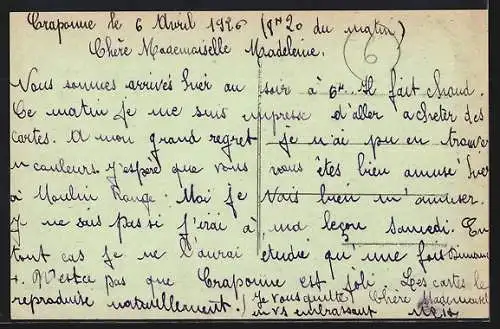 Craponne le 6 Avril 1926 (8H20 du matin)
Chère Mademoiselle Madeleine.
6
Nous sommes arrivés hier au soir à 6H. Il fait chaud.
Ce matin je me suis empressé d'aller acheter des
cartes. A mon grand regret je n'ai pu en trouver
en couleurs. J'espère que vous vous êtes bien amusé hier
à Moulin Rouge. Moi je vais bien m'amuser.
Je ne sais pas si j'irai à ma leçon Samedi. En
tout cas je ne l'aurai étudié qu'une fois Dimanche
N'est ce pas que Craponne est joli Les cartes le
reproduise naturellement! Je vous quitte Chère Mademoiselle
en vs embrassant